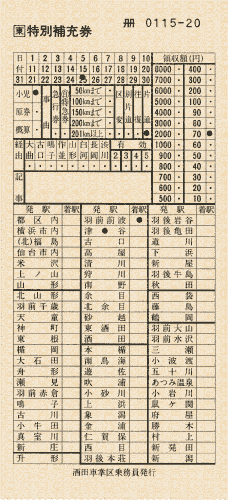 冊 0115-20
東 特別補充券
日 1 2 3 4 5 6 7 8 9 10 領収額(円)
付 11 12 13 14 15 16 17 18 19 20 8000 400 90
31 21 22 23 24 25 26 27 28 29 30 7000 300 80
小児 事由 急行券 50kmまで 区変 別片道 往復 片道 2000 70
原券 100kmまで 1000 60
概算 150kmまで 900 50
200km以上 800 40
経由 大石田 古口 鳴子 作並 山形 白河 長岡 有効 700 30
2 3 4 5 600 20
記事 500 10
発駅 着駅 発駅 着駅 発駅 着駅
都区内 羽前前波 羽後岩谷
横浜市内 津谷 羽後亀田
(北)福島 古口 道川
仙台市内 高屋 下浜
米沢 清川 新屋
上ノ山 狩川 羽後牛島
山形 南野 秋田
北山形 余目 西袋
羽前千歳 北余目 藤島
天童 砂越 鶴岡
神町 東酒田 羽前大山
東根 酒田 羽前水沢
楯岡 本楯 三瀬
大石田 南鳥海 小波渡
舟形 遊佐 五十川
瀬見 吹浦 あつみ温泉
羽前赤倉 小砂川 小岩川
鳴子 上浜 鼠ヶ関
古川 象潟 府屋
小牛田 金浦 勝木
真室川 仁賀保 村上
新庄 西目 新発田
升形 羽後本荘 新潟
酒田車掌区乗務員発行